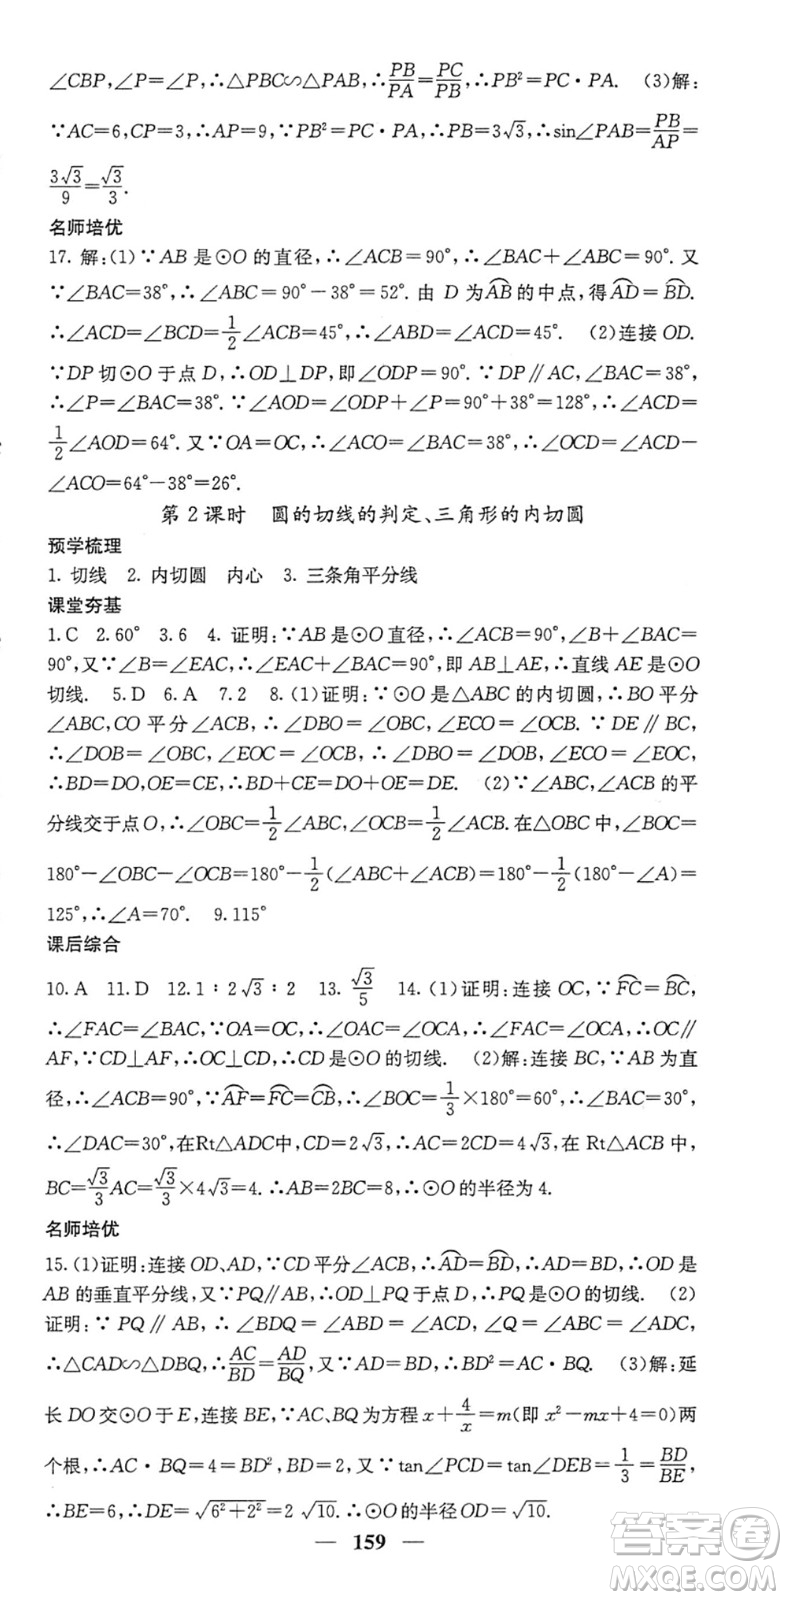 ∠CBP,∠P=∠P,∴△PBC∽△PAB,∴PB/PA=PC/PB,∴PB²=PC·PA. (3)解:
∵AC=6,CP=3,∴AP=9,∵PB²=PC·PA,∴PB=3√3,∴sin∠PAB=PB/AP=
3√3/9=√3/3.
名师培优
17. 解:(1)∵AB是⊙O的直径,∴∠ACB=90°,∴∠BAC+∠ABC=90°. 又
∵∠BAC=38°,∴∠ABC=90°-38°=52°. 由 D 为⌒AB的中点,得⌒AD=⌒BD.
∴∠ACD=∠BCD=1/2∠ACB=45°,∴∠ABD=∠ACD=45°. (2)连接OD.
∵DP切⊙O于点D,∴OD⊥DP,即∠ODP=90°. ∵DP∥AC,∠BAC=38°,
∴∠P=∠BAC=38°. ∵∠AOD=∠ODP+∠P=90°+38°=128°,∴∠ACD=
1/2∠AOD=64°. 又∵OA=OC,∴∠ACO=∠BAC=38°,∴∠OCD=∠ACD-
∠ACO=64°-38°=26°.
第2课时 圆的切线的判定、三角形的内切圆
预学梳理
1. 切线 2. 内切圆 内心 3. 三条角平分线
课堂夯基
1.C 2.60° 3.6 4. 证明:∵AB是⊙O直径,∴∠ACB=90°,∠B+∠BAC=
90°,又∵∠B=∠EAC,∴∠EAC+∠BAC=90°,即AB⊥AE,∴直线AE是⊙O
切线. 5.D 6.A 7.2 8.(1)证明:∵⊙O是△ABC的内切圆,∴BO平分
∠ABC,CO平分∠ACB,∴∠DBO=∠OBC,∠ECO=∠OCB. ∵DE∥BC,
∴∠DOB=∠OBC,∠EOC=∠OCB. ∴∠DBO=∠DOB,∠ECO=∠EOC,
∴BD=DO,OE=CE,∴BD+CE=DO+OE=DE. (2)∵∠ABC,∠ACB的平
分线交于点O,∴∠OBC=1/2∠ABC,∠OCB=1/2∠ACB.在△OBC中,∠BOC=
180°-∠OBC-∠OCB=180°-1/2(∠ABC+∠ACB)=180°-1/2(180°-∠A)=
125°,∴∠A=70°. 9.115°
课后综合
10.A 11.D 12.1∶2√3∶2 13.√3/5 14.(1)证明:连接OC,∵⌒FC=⌒BC,
∴∠FAC=∠BAC,∵OA=OC,∴∠OAC=∠OCA,∴∠FAC=∠OCA,∴OC∥
AF,∵CD⊥AF,∴OC⊥CD,∴CD是⊙O的切线. (2)解:连接BC,∵AB为直
径,∴∠ACB=90°,∵⌒AF=⌒FC=⌒CB,∴∠BOC=1/3×180°=60°,∴∠BAC=30°,
∴∠DAC=30°,在Rt△ADC中,CD=2√3,∴AC=2CD=4√3,在Rt△ACB中,
BC=√3/3AC=√3/3×4√3=4.∴AB=2BC=8,∴⊙O的半径为4.
名师培优
15.(1)证明:连接OD、AD,∵CD平分∠ACB,∴⌒AD=⌒BD,∴AD=BD,∴OD是
AB的垂直平分线,又∵PQ∥AB,∴OD⊥PQ于点D,∴PQ是⊙O的切线. (2)
证明:∵PQ∥AB,∴∠BDQ=∠ABD=∠ACD,∠Q=∠ABC=∠ADC,
∴△CAD∽△DBQ,∴AC/BD=AD/BQ,又∵AD=BD,∴BD²=AC·BQ. (3)解:延
长DO交⊙O于E,连接BE,∵AC、BQ为方程x+4/x=m(即x²-mx+4=0)两
个根,∴AC·BQ=4=BD²,∴BD=2,又∵tan∠PCD=tan∠DEB=1/3=BD/BE,
∴BE=6,∴DE=√(6²+2²)=2√10.∴⊙O的半径OD=√10.
— 159 —
答案圈
MXQE.COM